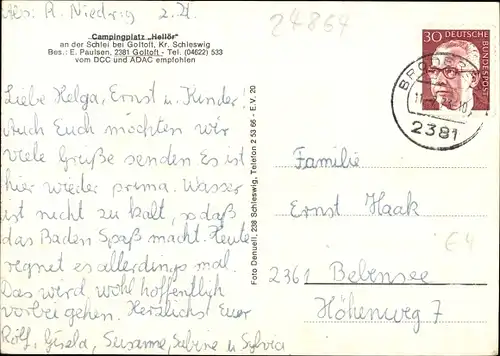 Abs: R. Niedrig z. Zt.
Campingplatz „Hellör"
an der Schlei bei Goltoft, Kr. Schleswig
Bes.: E. Paulsen, 2381 Goltoft - Tel. (04622) 533
vom DCC und ADAC empfohlen
Liebe Helga, Ernst u. Kinder!
Auch Euch möchten wir
viele Grüße senden Es ist
hier wieder prima. Wasser
ist nicht zu kalt, so daß
das Baden Spaß macht. Heute
regnet es allerdings mal.
Das wird wohl hoffentlich
vorbei gehen. Herzlichst Euer
Rolf, Gisela, Susanne, Sabine u Sylvia
Foto Denuell, 238 Schleswig, Telefon 2 53 66 - E.V. 20
24864
30 DEUTSCHE
BUNDESPOST
2381
Familie
Ernst Haak
E4
2361 Bebensee
Höhenweg 7